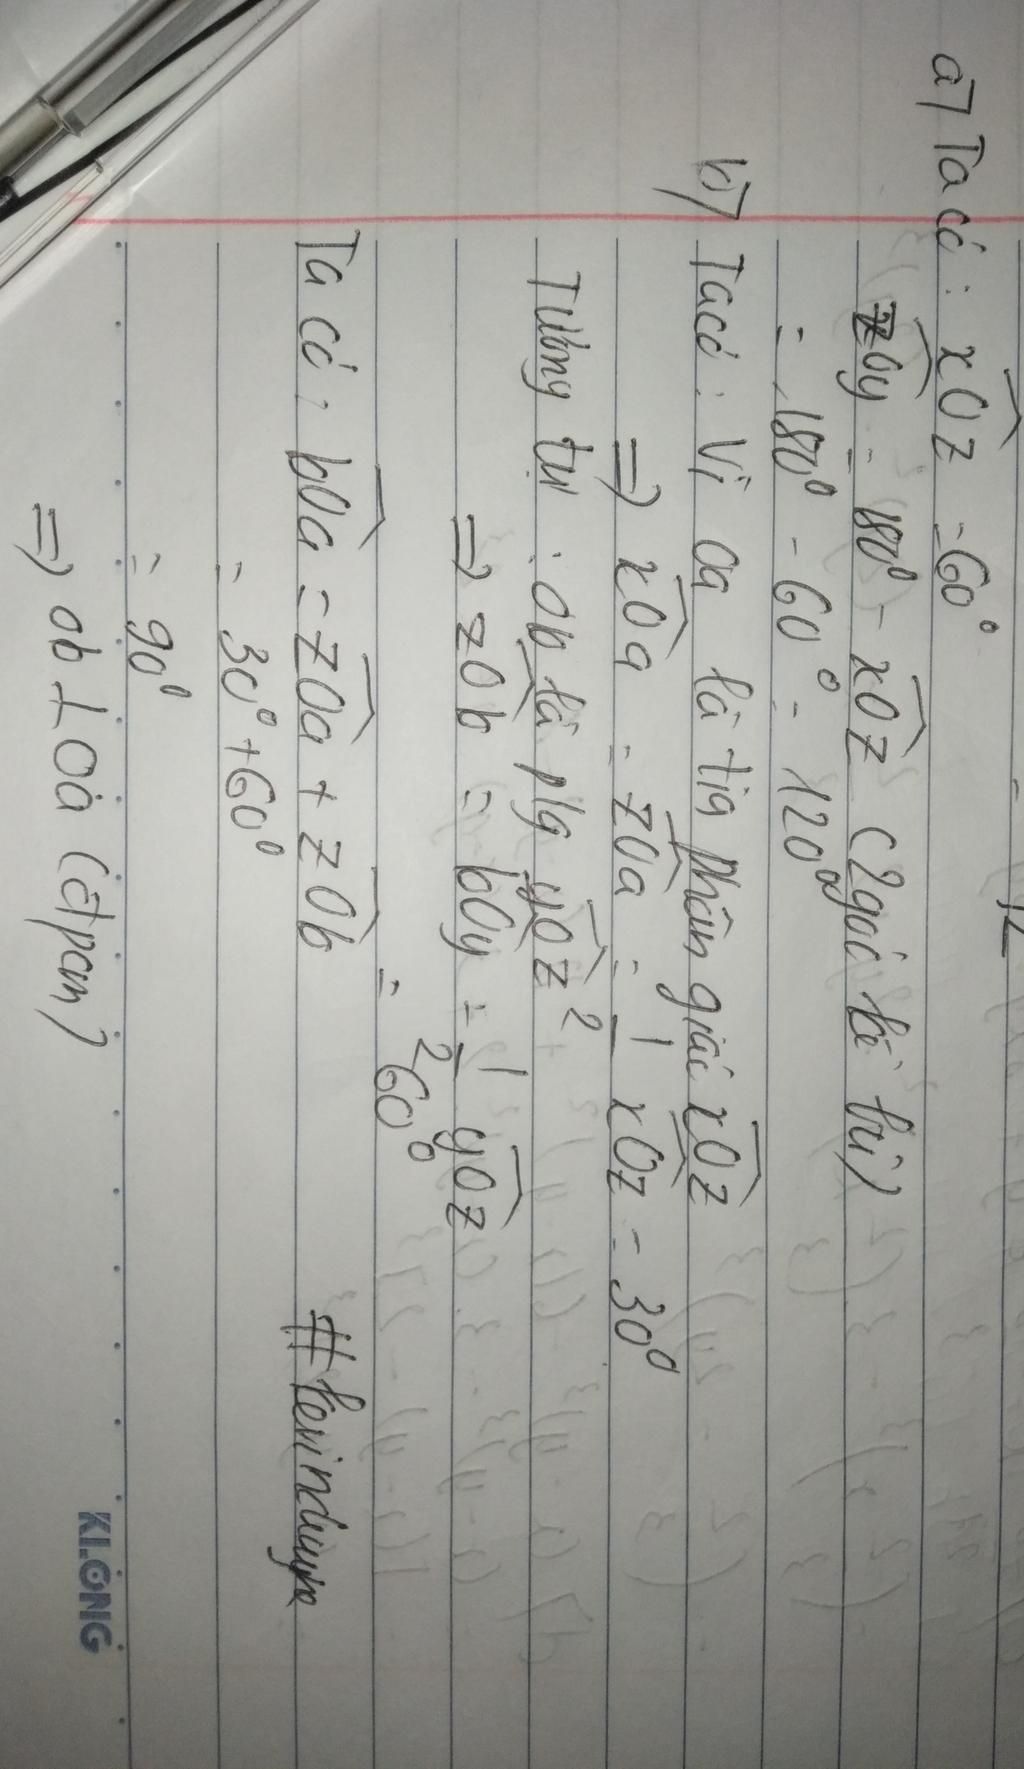 a) Ta có: xOz = 60°
zOy = 180° - xOz (2 góc kề bù)
= 180° - 60° = 120°
b) Ta có: Vì Oa là tia phân giác xOz
=> xOa = zOa = 1/2 xOz = 30°
Tương tự: Ob là plg yOz
=> zOb = bOy = 1/2 yOz
= 60°
Ta có: bOa = zOa + zOb
= 30° + 60°
= 90°
=> Ob ⊥ Oa (đpcm)
KLONG